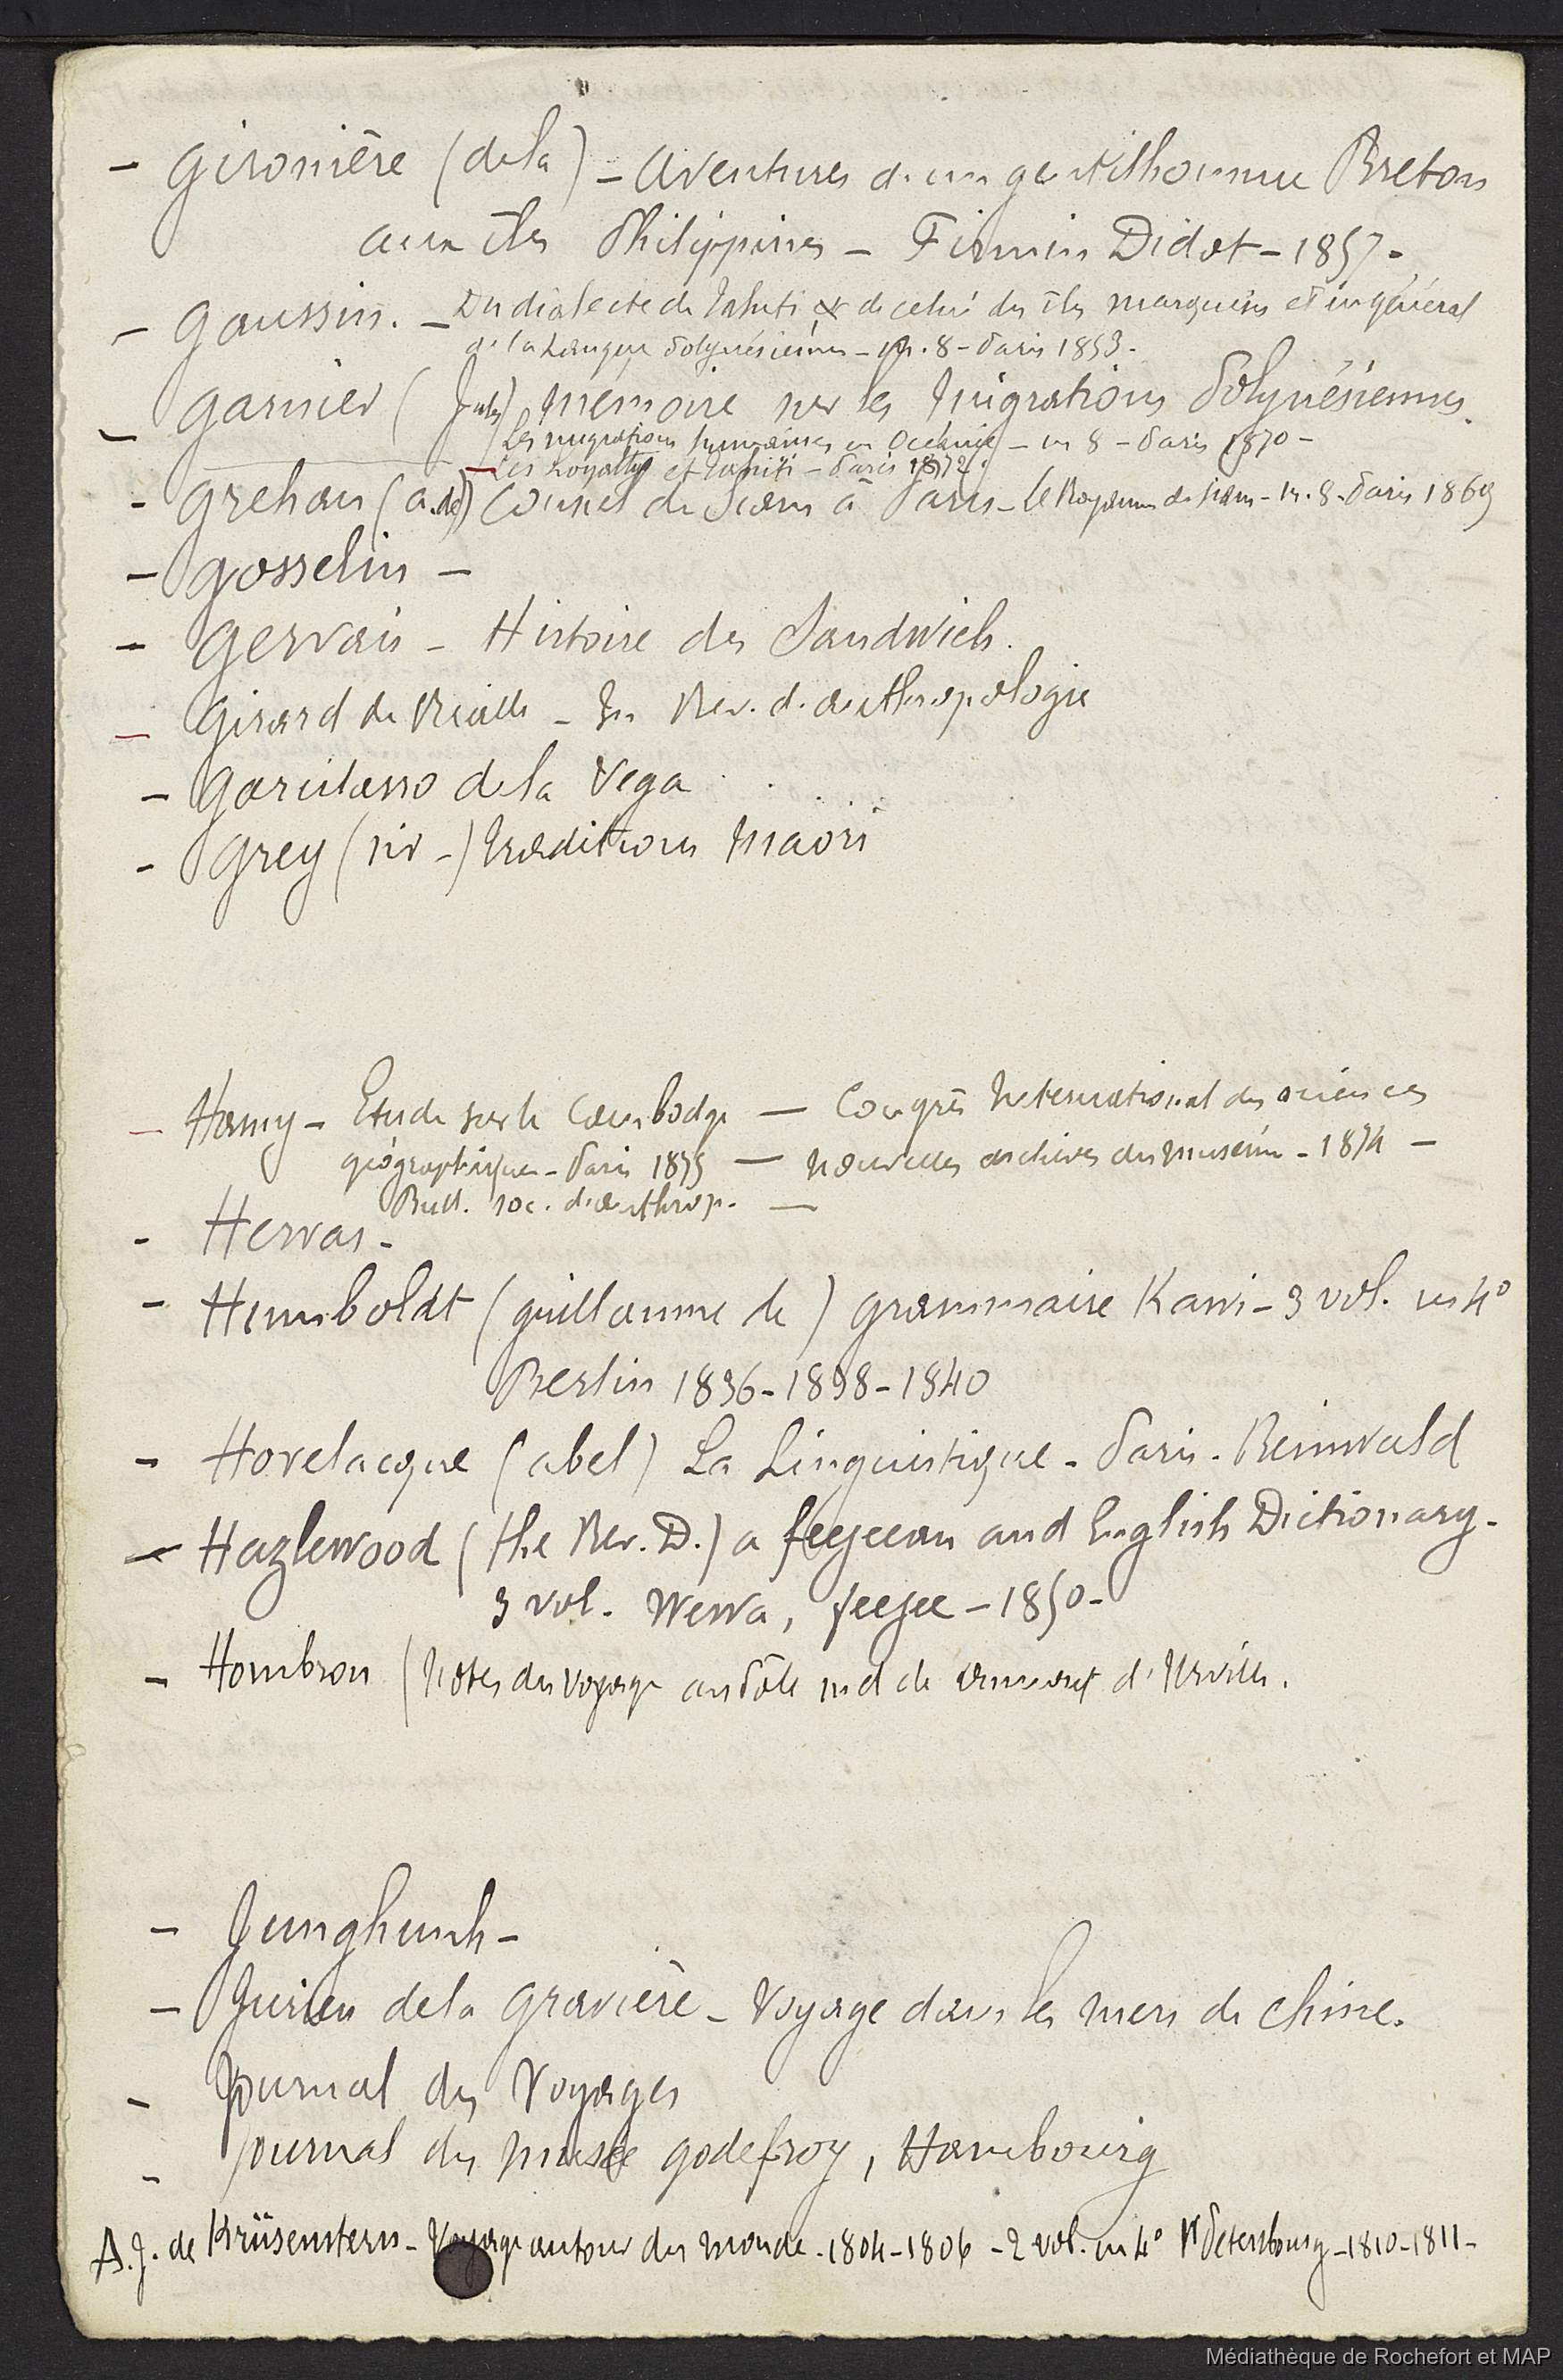 - Gironière (de la) - Aventures d'un gentilhomme Breton
aux îles Philippines - Firmin Didot - 1857 -
- Gaussin. - Du dialecte de Tahiti & de celui des îles marquises et en général
de la Langue Polynésienne - in. 8 - Paris 1853 -
- Garnier (Jules) mémoire sur les Migrations Polynésiennes.
Les migrations humaines en Océanie - in 8 - Paris 1870 -
- Les Loyaltys et Tahiti - Paris 1872.
- Grehan (a. de) Consul de Siam à Paris - le Royaume de Siam - in. 8 - Paris 1869
- Gosselin -
- Gervais - Histoire des Sandwich.
- Girard de Rialle - In Rev. d'anthropologie
- Garcilasso de la Vega
- Grey (sir -) Traditions Maori
- Hamy - Etude sur le Cambodge - Congrès International des sciences
géographiques - Paris 1875 - nouvelles archives du museum - 1874 -
Bull. soc. d'anthrop. -
- Hervas -
- Humboldt (guillaume de) grammaire Kawi - 3 vol. in 4°
Berlin 1836 - 1838 - 1840
- Hovelacque (abel) La Linguistique - Paris. Reinwald
- Hazlewood (the Rev. D.) a feejeean and English Dictionary -
3 vol. Wewa, feejee - 1850 -
- Hombron (Notes du voyage au Pôle sud de dumont d'Urville.
- Junghunh -
- Jurien de la Gravière - Voyage dans les mers de Chine.
- Journal des Voyages
- Journal du musée Godefroy, Hambourg
A. J. de Krüsenstern - Voyage autour du monde - 1804 - 1806 - 2 vol. in 4° St Petersbourg - 1810 - 1811 -
Médiathèque de Rochefort et MAP